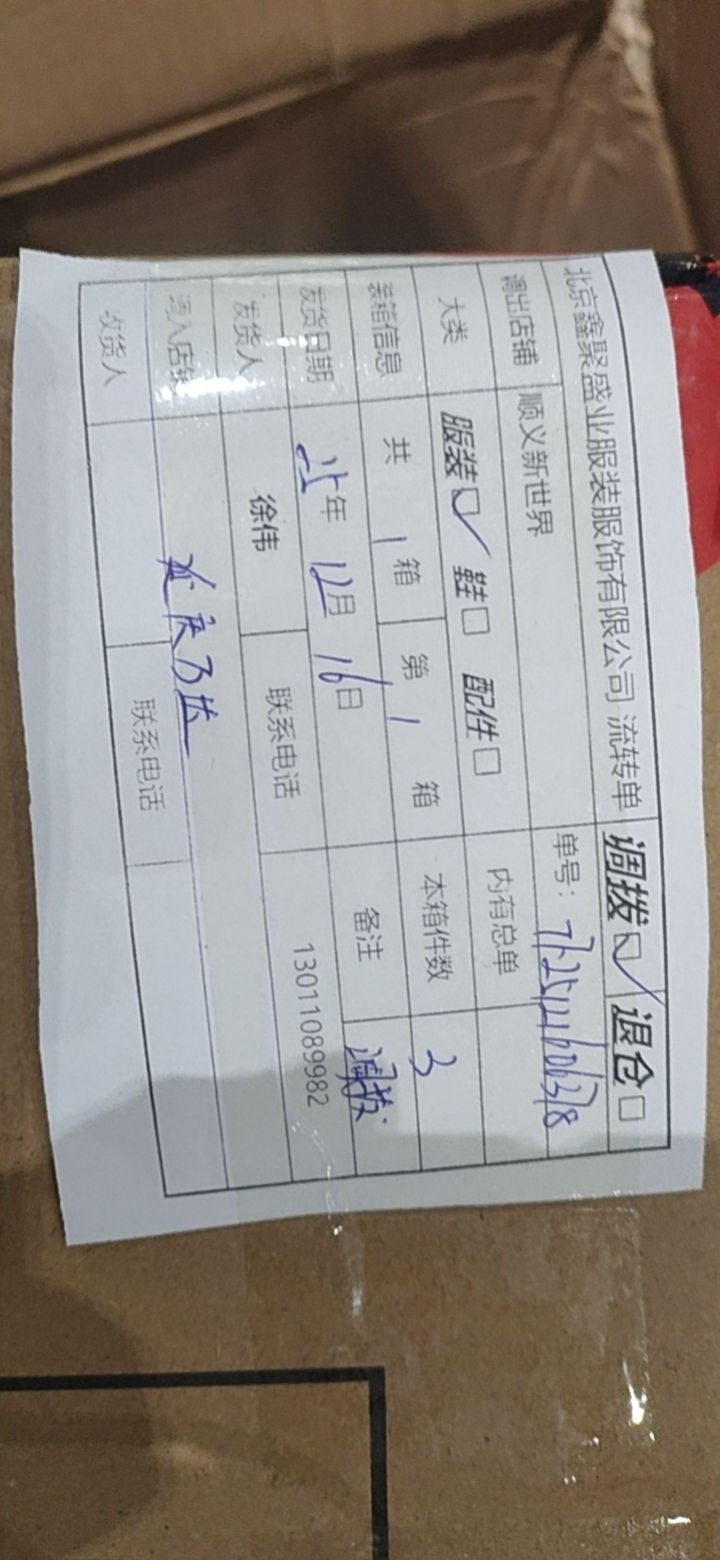 北京鑫聚盛业服装服饰有限公司 流转单 调拨☑ 退仓□
调出店铺 顺义新世界 单号：
大类 服装☑ 鞋□ 配件□ 内有总单
装箱信息 共 1 箱 第 1 箱 本箱件数 3
发货日期 25年 12月 16日 备注 调拨
发货人 徐伟 联系电话 13011089982
调入店铺
收货人 联系电话